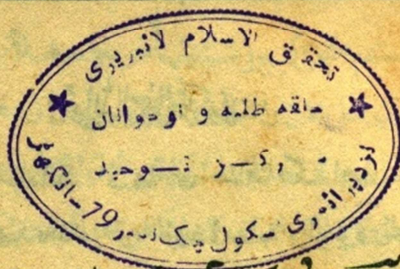 تحقیق الاسلام لائبریری
حلقہ طلبہ و نوجوانان
مرکز توحید
نزد پرائمری سکول چک نمبر 79 سانگھڑ